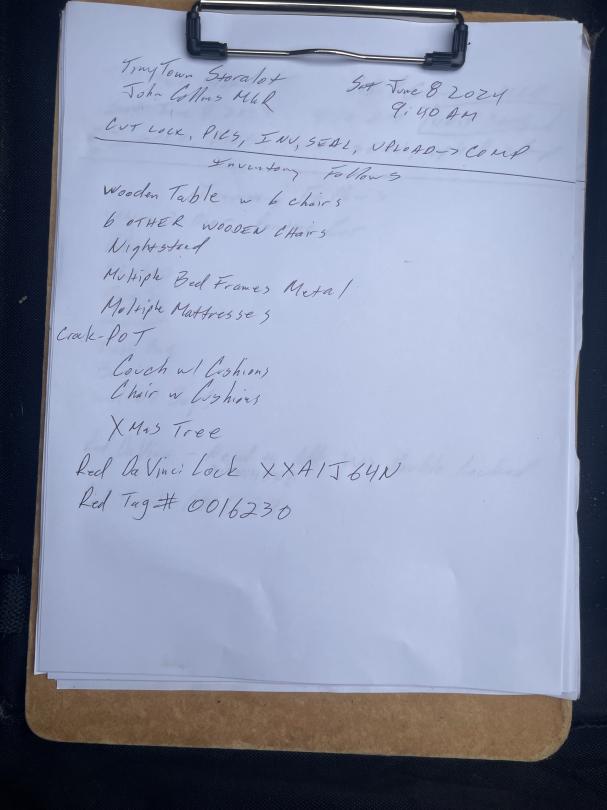 TinyTown Storalot
John Collins MGR
Sat June 8 2024
9:40 AM
CUT LOCK, PICS, INV, SEAL, UPLOAD -> COMP
Inventory Follows
Wooden Table w 6 chairs
6 OTHER WOODEN CHAIRS
Nightstand
Multiple Bed Frames Metal
Multiple Mattresses
Crock-POT
Couch w/ Cushions
Chair w Cushions
XMas Tree
Red DaVinci Lock XXA1J64N
Red Tag# 0016230